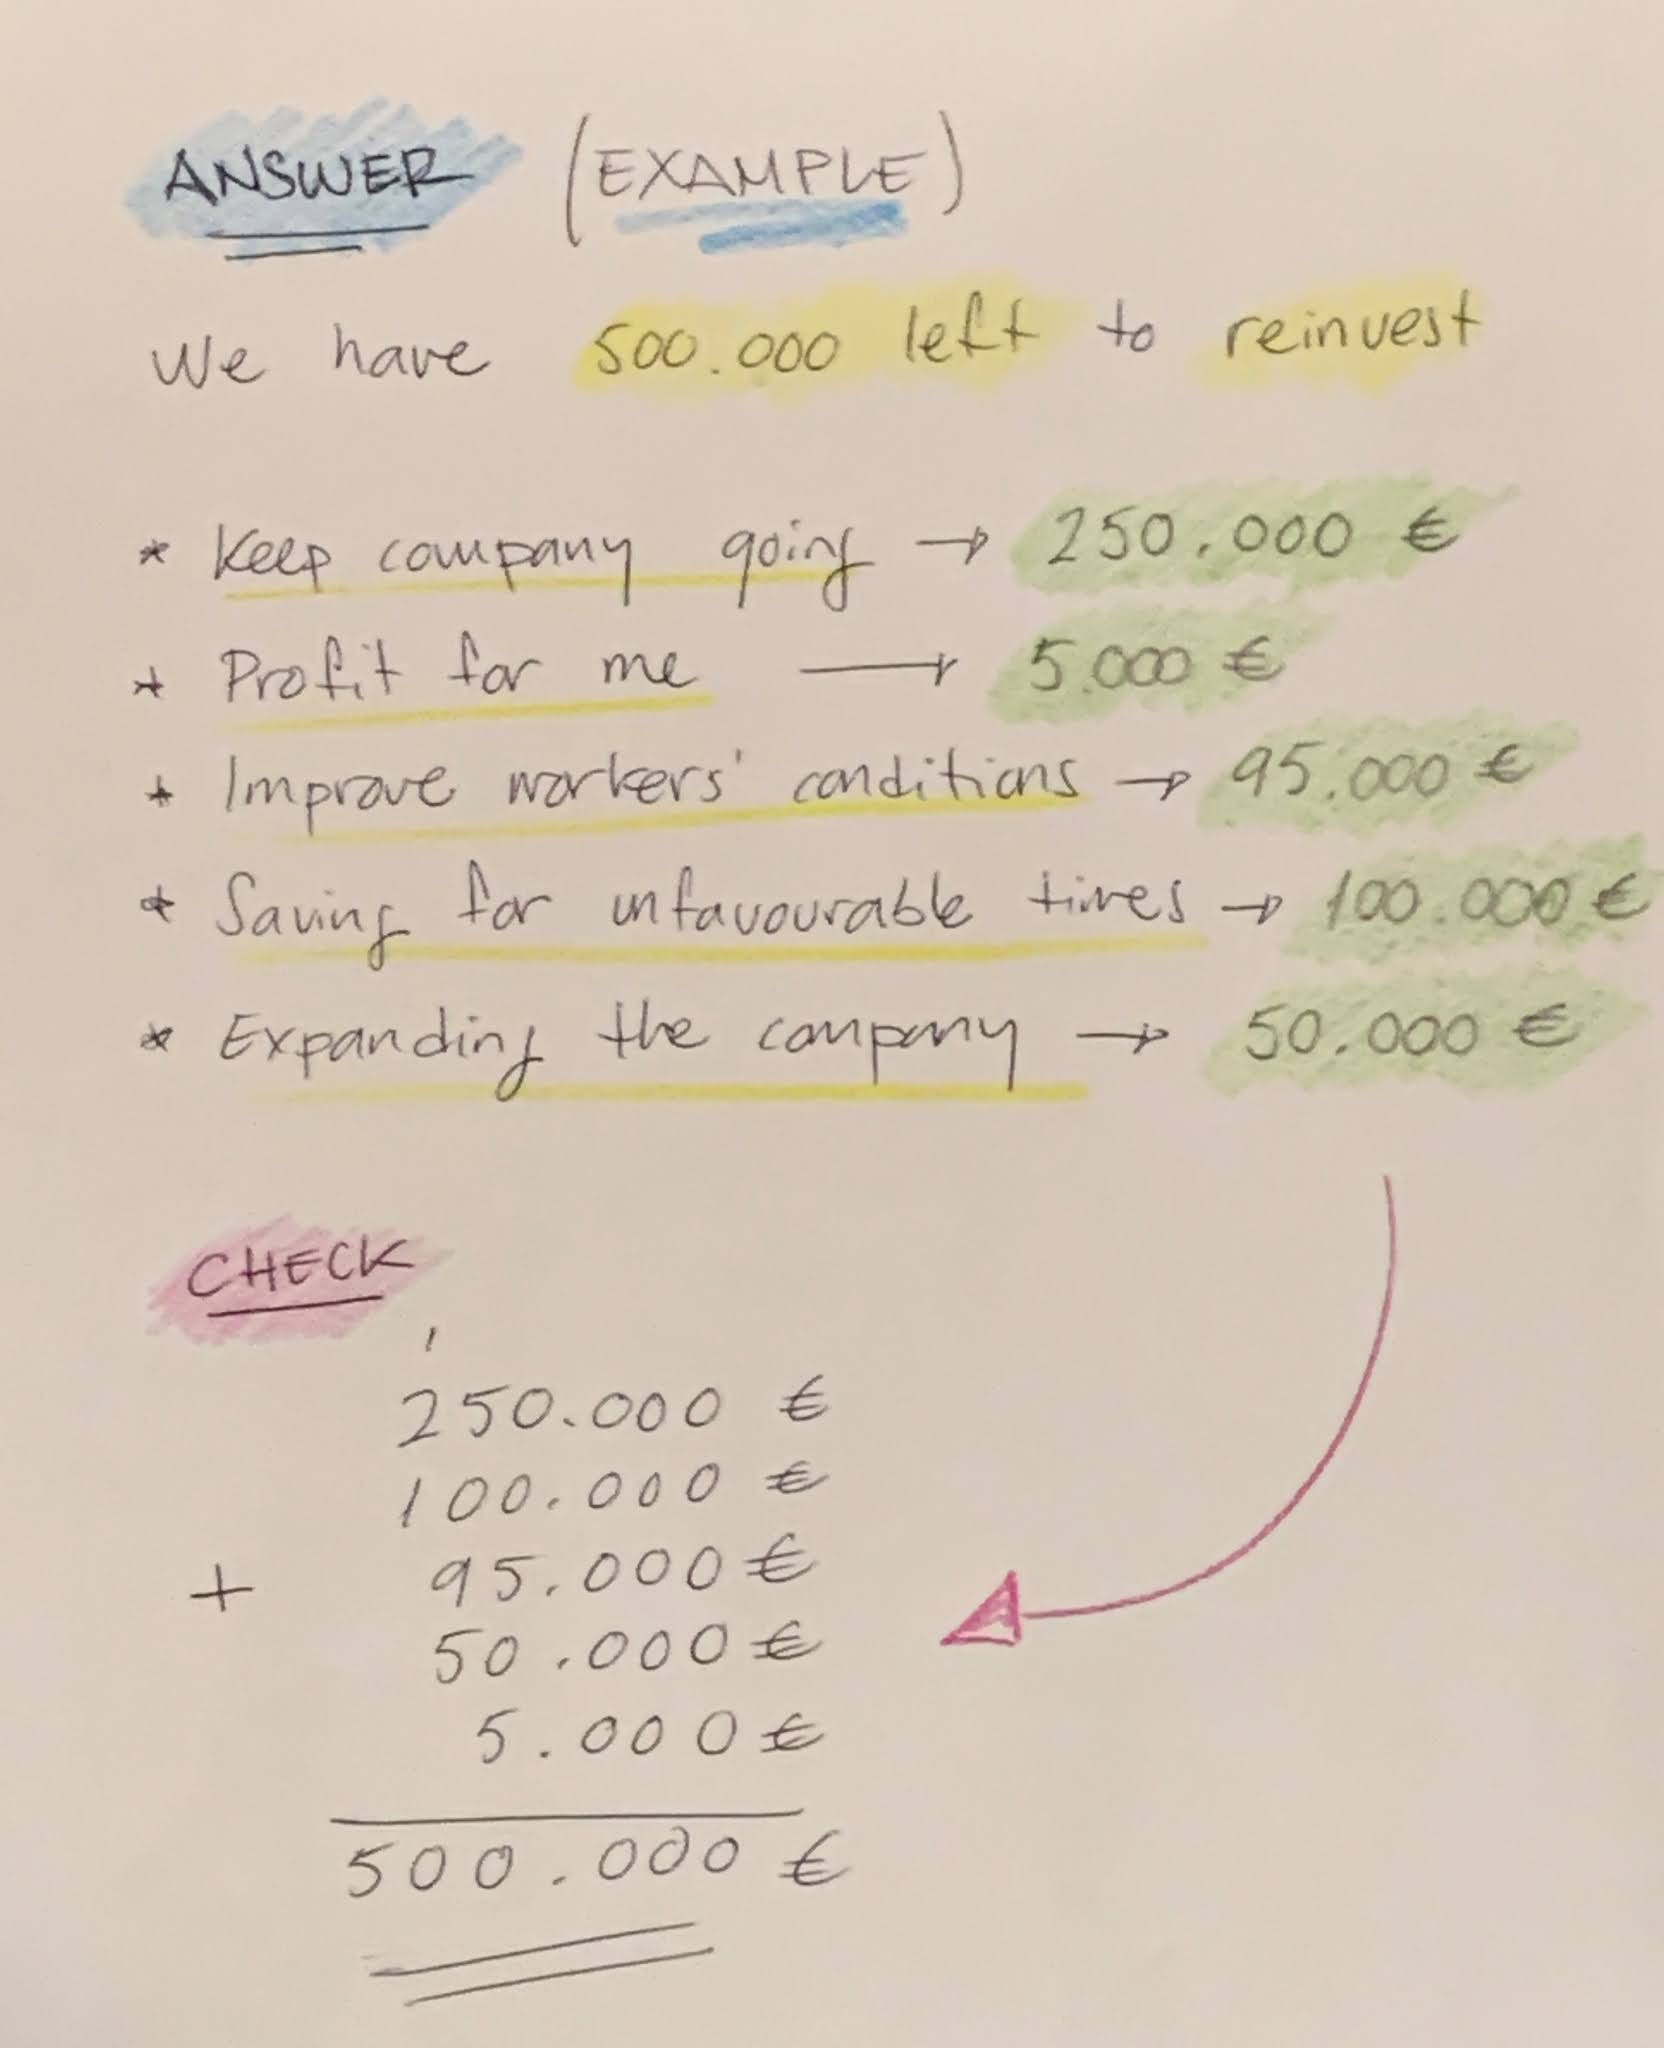 ANSWER (EXAMPLE)
We have 500.000 left to reinvest
* Keep company going → 250.000 €
* Profit for me → 5.000 €
* Improve workers' conditions → 95.000 €
* Saving for unfavourable times → 100.000 €
* Expanding the company → 50.000 €
CHECK
1
250.000 €
100.000 €
+ 95.000 €
50.000 €
5.000 €
500.000 €